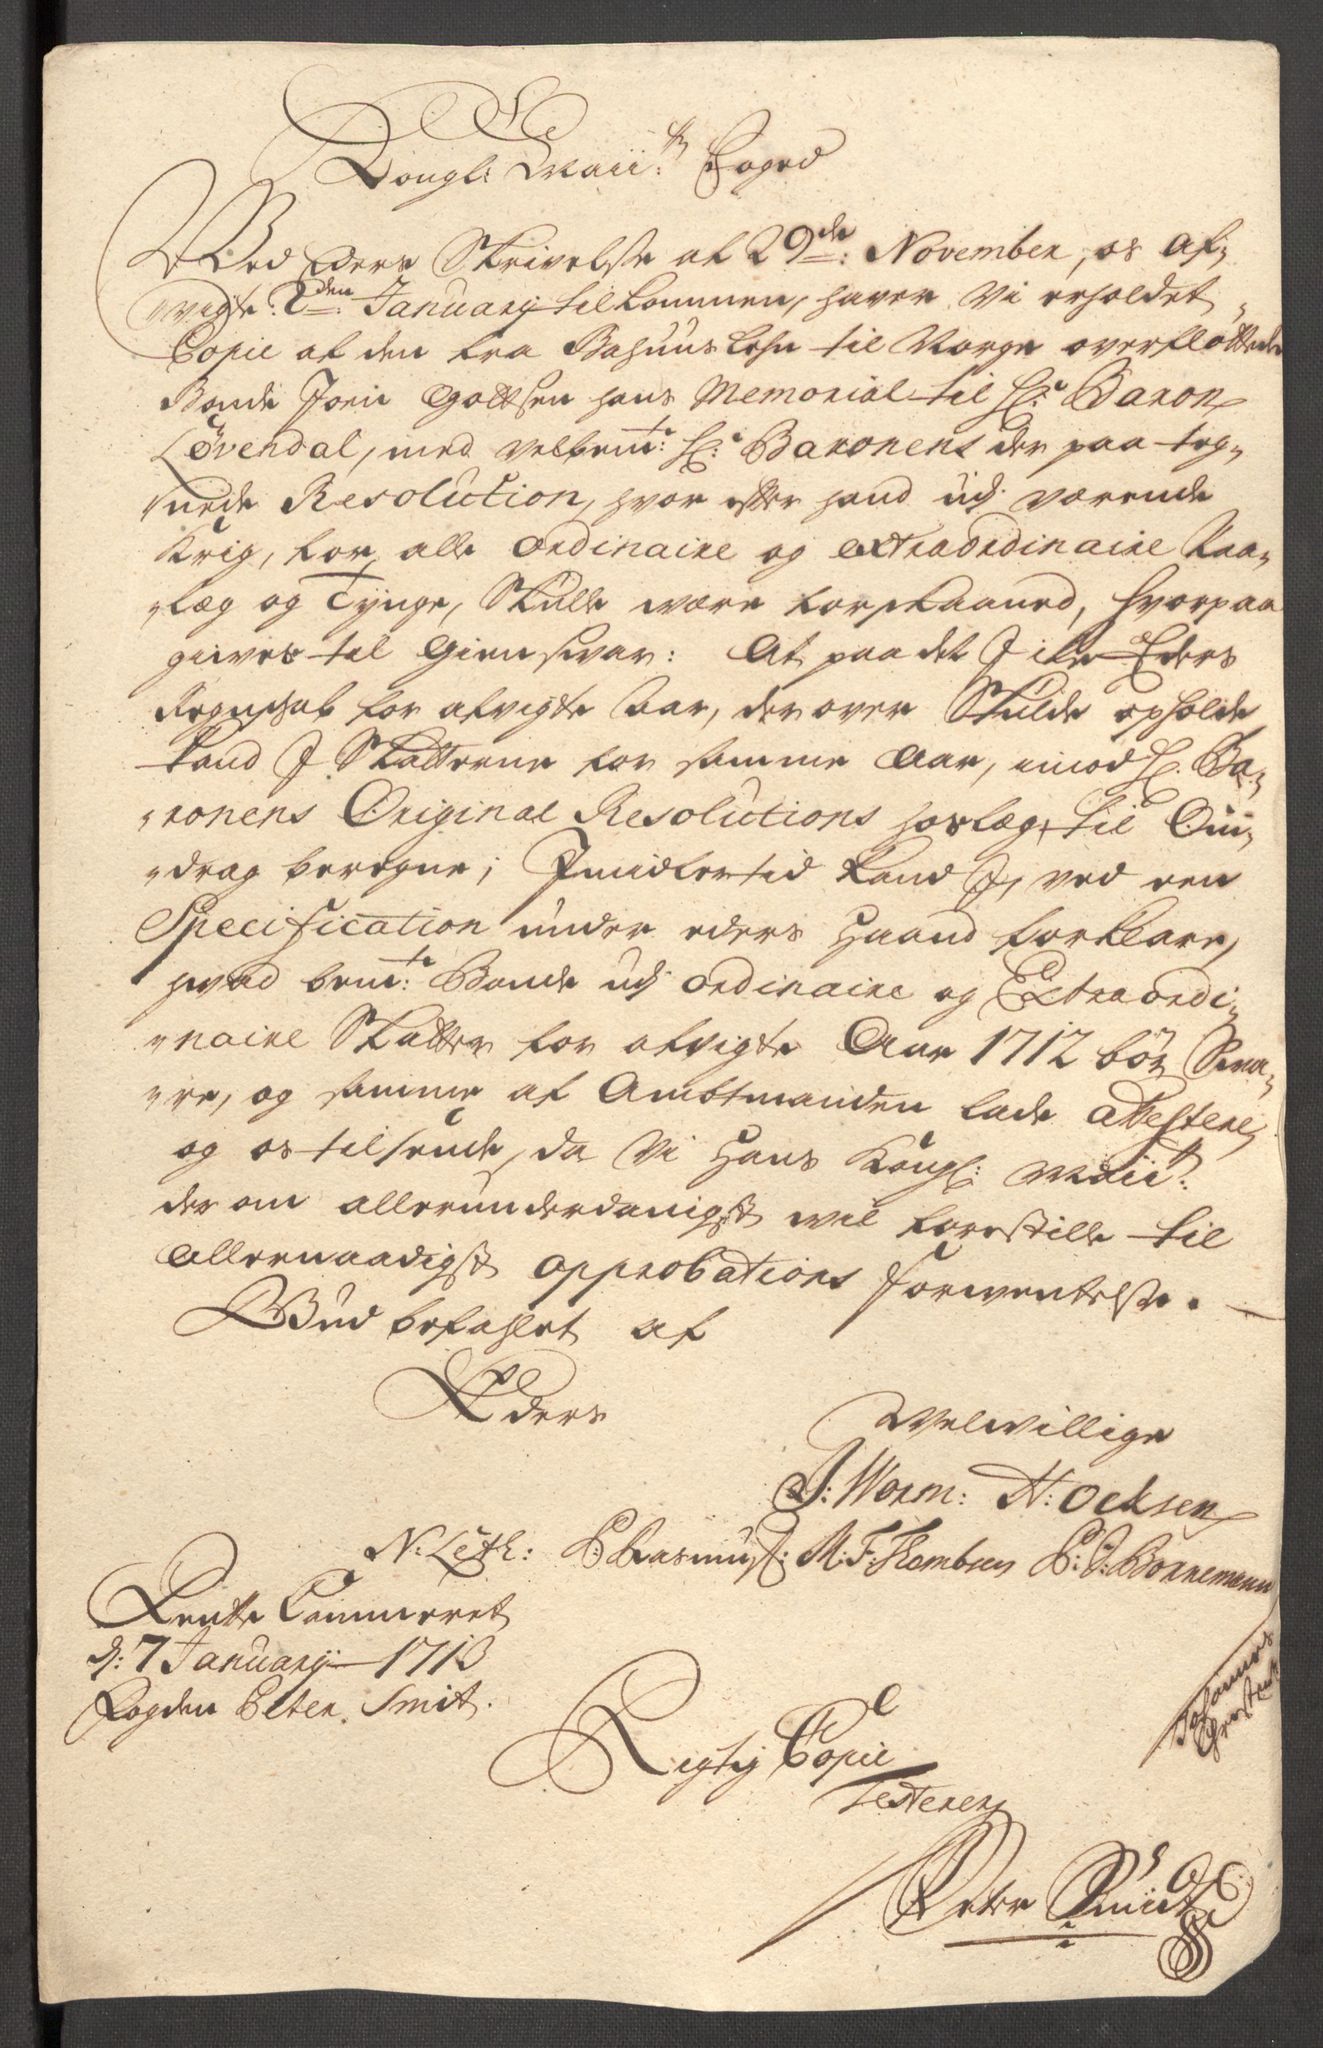 Kongl: Maii:ts Foged
Wed Eders Skrivelse af 29de: November, os af-
vigte 2den January tilkommen, haver Vi erholdet
Copie af den fra Bahuus Lehn til Norge overfløttede
Bonde Joen Gottsen hans Memorial til H:r Baron
Løvendal, med velbemte: H:r Baronens der paa teg-
nede Resolution, hvor efter hand udj værende
Krig, for alle ordinaire og extraordinaire Paa-
læg og Tynge, Skulle være forskaaned, hvorpaa
gives til Giensvar: At paa det I iche Eders
Regnskab for afvigte Aar, der over Skulde opholde,
kand I Skatterne for samme Aar, imod H:r Ba-
ronens Original Resolutions hoslæg, til Om-
drag beregne; Imidlertid kand I, ved een
Specification under eders Haand forklare,
hvad bemte: Bonde udj ordinaire og Extraordi-
naire Skatter for afvigte Aar 1712 bør Sva-
re, og samme af Ambtmanden lade attestere,
og os tilsende, da Vi Hans Kongl: Maii:ts
der om allerunderdanigst vil forestille til
allernaadigst approbations forventelse.
Gud befahlet af
Eders
Velwillige
J: Worm: H: Ocksen
N: Leth: C: Rasmuss: M: F: C: J: Bornemann
Johannes
Rente Cammeret
d: 7 January 1713
Fogden Peter Smit.
Rigtig Copie
Testerer
Peter Smidt